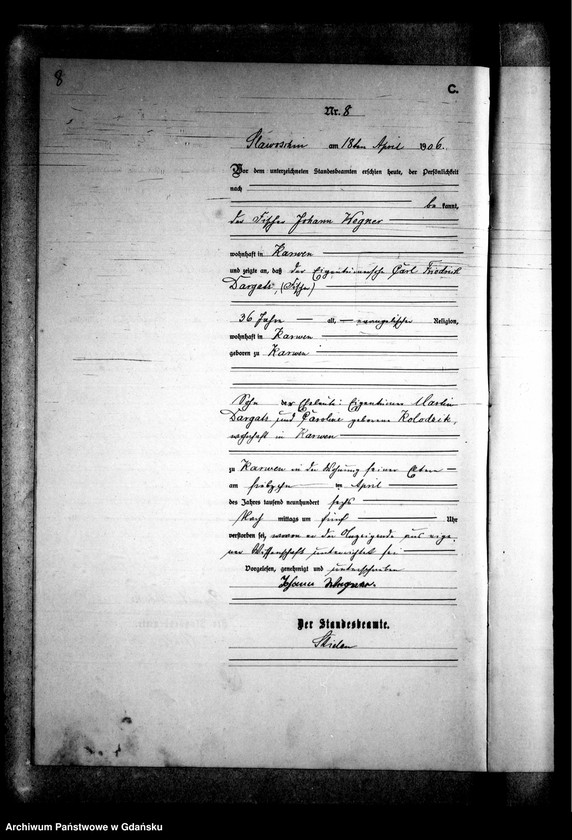 8
C.
Nr. 8
Slawoschin am 18ten April 1906.
Vor dem unterzeichneten Standesbeamten erschien heute, der Persönlichkeit
nach
bekannt,
der Fischer Johann Wegner
wohnhaft in Karwen
und zeigte an, daß der Eigentümersohn Carl Friedrich
Dargatz, (Fischer)
36 Jahre alt, evangelischer Religion,
wohnhaft in Karwen
geboren zu Karwen
Sohn der Eheleute: Eigentümer Martin
Dargatz und Caroline geborene Kolodzik,
wohnhaft in Karwen
zu Karwen in der Wohnung seiner Eltern
am siebzehn im April
des Jahres tausend neunhundert sechs
Nach mittags um fünf Uhr
verstorben sei, wovon er der Anzeigende aus eige-
ner Wissenschaft unterrichtet sei
Vorgelesen, genehmigt und unterschrieben
Johann Wegner.
Der Standesbeamte.
Archiwum Państwowe w Gdańsku